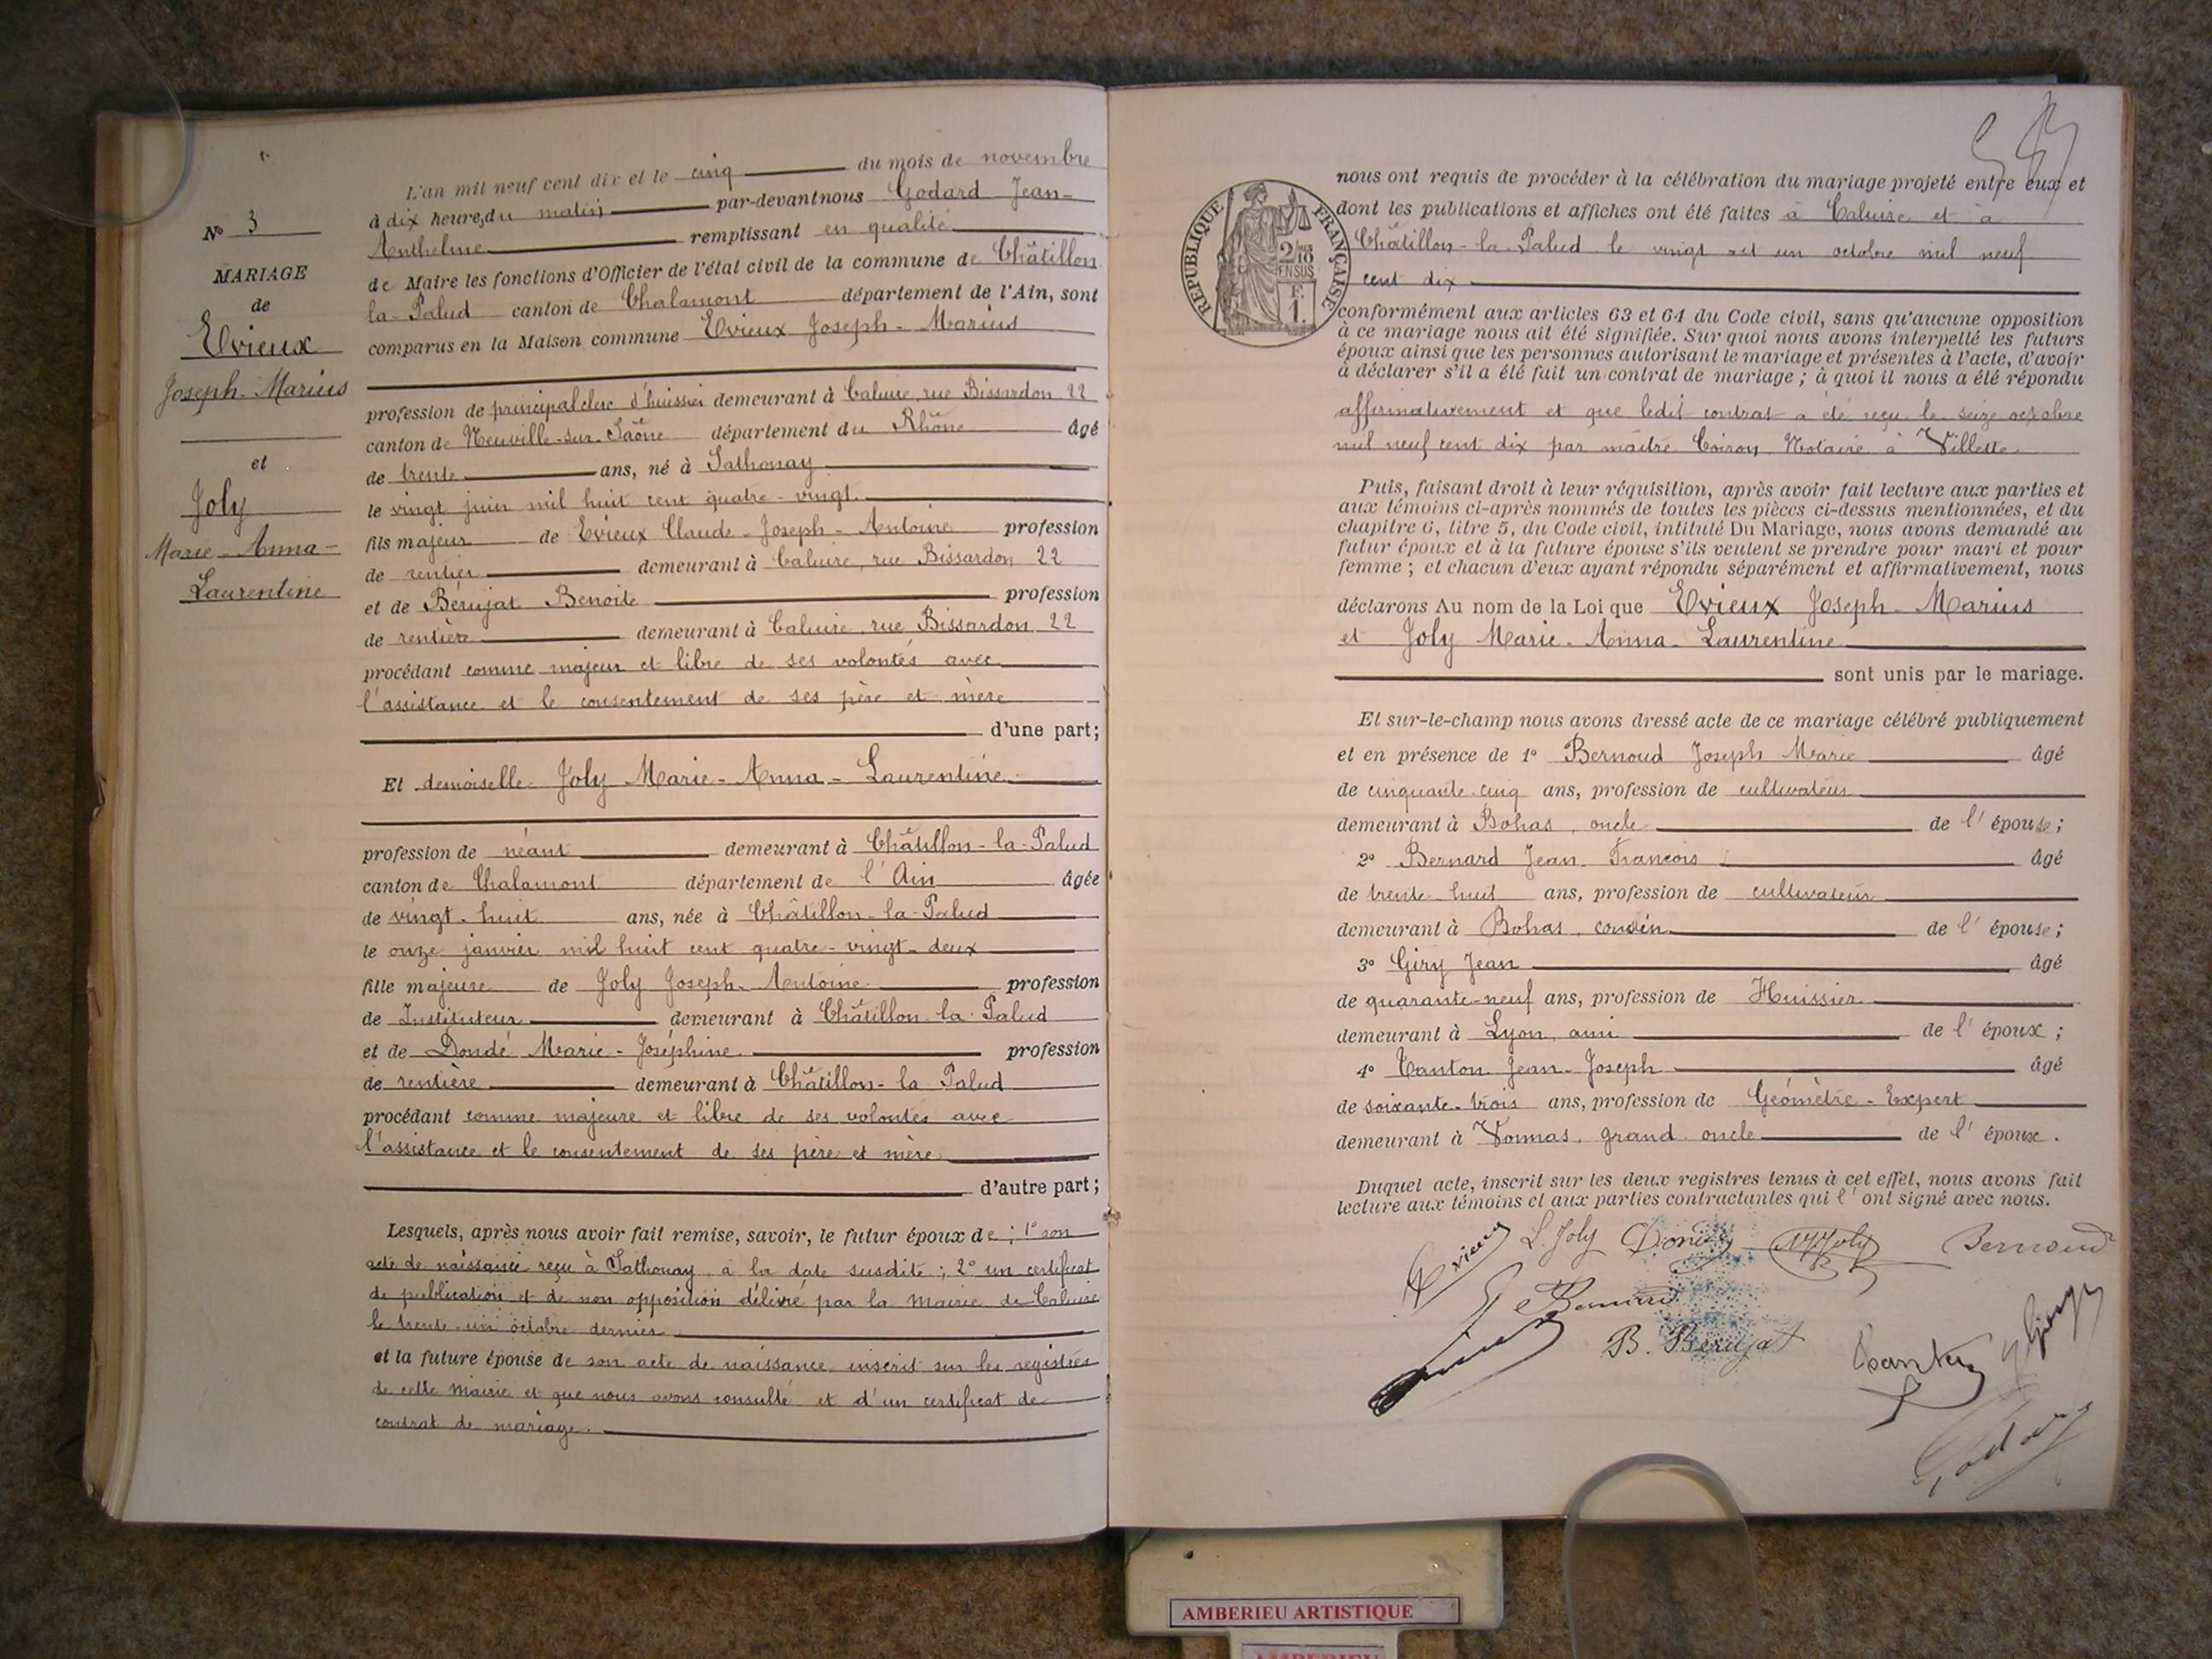 N° 3
MARIAGE
de
Evieux
Joseph-Marius
et
Joly
Marie-Anna-
Laurentine
L'an mil neuf cent dix et le cinq du mois de novembre
à dix heures du matin par-devant nous Godard Jean-
Anthelme remplissant en qualité
de Maire les fonctions d'Officier de l'état civil de la commune de Châtillon
la-Palud canton de Chalamont département de l'Ain, sont
comparus en la Maison commune Evieux Joseph-Marius
profession de principal clerc d'huissier demeurant à Caluire, rue Bissardon 22
canton de Neuville-sur-Saône département du Rhône âgé
de trente ans, né à Sathonay
le vingt juin mil huit cent quatre-vingt
fils majeur de Evieux Claude-Joseph-Antoine profession
de rentier demeurant à Caluire, rue Bissardon 22
et de Bérujat Benoite profession
de rentière demeurant à Caluire, rue Bissardon 22
procédant comme majeur et libre de ses volontés avec
l'assistance et le consentement de ses père et mère
d'une part;
Et demoiselle Joly Marie-Anna-Laurentine
profession de néant demeurant à Châtillon-la-Palud
canton de Chalamont département de l'Ain âgée
de vingt-huit ans, née à Châtillon-la-Palud
le onze janvier mil huit cent quatre-vingt-deux
fille majeure de Joly Joseph-Antoine profession
de Instituteur demeurant à Châtillon-la-Palud
et de Dondé Marie-Joséphine profession
de rentière demeurant à Châtillon-la-Palud
procédant comme majeure et libre de ses volontés avec
l'assistance et le consentement de ses père et mère
d'autre part;
Lesquels, après nous avoir fait remise, savoir, le futur époux de : 1° son
acte de naissance reçu à Sathonay, à la date susdite ; 2° un certificat
de publication et de non opposition délivré par la Mairie de Caluire
le trente-un octobre dernier
et la future épouse de son acte de naissance inscrit sur les registres
de cette Mairie et que nous avons consulté et d'un certificat de
contrat de mariage.
RÉPUBLIQUE FRANÇAISE
2/10 EN SUS
F. 1.
nous ont requis de procéder à la célébration du mariage projeté entre eux et
dont les publications et affiches ont été faites à Caluire et à
Châtillon-la-Palud le vingt et un octobre mil neuf
cent dix
conformément aux articles 63 et 64 du Code civil, sans qu'aucune opposition
à ce mariage nous ait été signifiée. Sur quoi nous avons interpellé les futurs
époux ainsi que les personnes autorisant le mariage et présentes à l'acte, d'avoir
à déclarer s'il a été fait un contrat de mariage ; à quoi il nous a été répondu
affirmativement et que ledit contrat a été reçu le seize octobre
mil neuf cent dix par maître Coiron, Notaire à Villette.
Puis, faisant droit à leur réquisition, après avoir fait lecture aux parties et
aux témoins ci-après nommés de toutes les pièces ci-dessus mentionnées, et du
chapitre 6, titre 5, du Code civil, intitulé Du Mariage, nous avons demandé au
futur époux et à la future épouse s'ils veulent se prendre pour mari et pour
femme ; et chacun d'eux ayant répondu séparément et affirmativement, nous
déclarons Au nom de la Loi que Evieux Joseph-Marius
et Joly Marie-Anna-Laurentine
sont unis par le mariage.
Et sur-le-champ nous avons dressé acte de ce mariage célébré publiquement
et en présence de 1° Bernoud Joseph Marie âgé
de cinquante-cinq ans, profession de cultivateur
demeurant à Bohas, oncle de l'épouse;
2° Bernard Jean-François âgé
de trente-huit ans, profession de cultivateur
demeurant à Bohas, cousin de l'épouse;
3° Giry Jean âgé
de quarante-neuf ans, profession de Huissier
demeurant à Lyon, ami de l'époux ;
4° Tanton Jean-Joseph âgé
de soixante-trois ans, profession de Géomètre-Expert
demeurant à Vonnas, grand oncle de l'époux.
Duquel acte, inscrit sur les deux registres tenus à cet effet, nous avons fait
lecture aux témoins et aux parties contractantes qui l'ont signé avec nous.
Evieux L. Joly Joly Bernoud
B. Berujat
Godard
AMBERIEU ARTISTIQUE
AMBERIEU